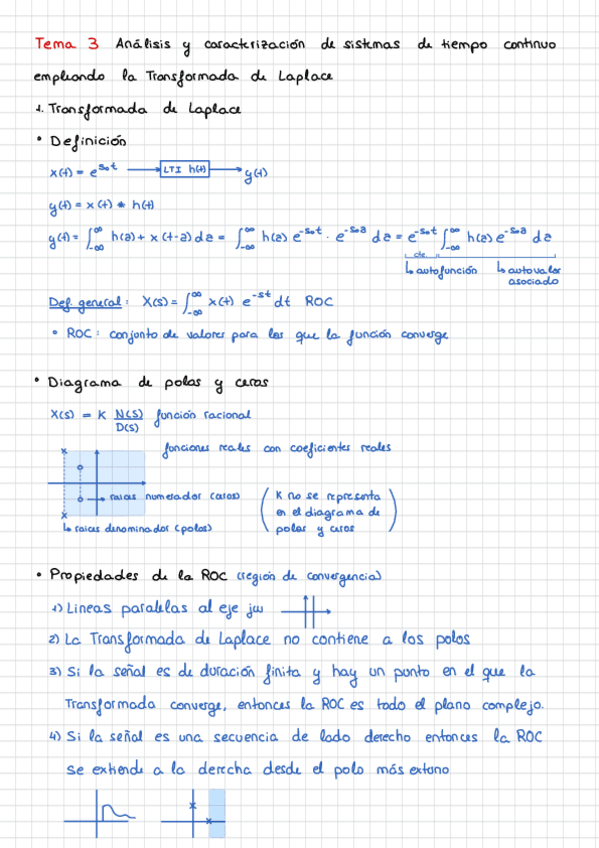 Tema 3 Análisis y caracterización de sistemas de tiempo continuo
empleando la Transformada de Laplace
1. Transformada de Laplace
• Definición
x(t) = e^{s₀t} → LTI h(t) → y(t)
y(t) = x(t) * h(t)
y(t) = ∫_{-∞}^{∞} h(a) + x(t-a) da = ∫_{-∞}^{∞} h(a) e^{-s₀t} · e^{-s₀a} da = e^{-s₀t} ∫_{-∞}^{∞} h(a) e^{-s₀a} da
cte
↳ autofunción ↳ autovalor
asociado
Def. general: X(s) = ∫_{-∞}^{∞} x(t) e^{-st} dt ROC
• ROC: conjunto de valores para los que la función converge
• Diagrama de polos y ceros
X(s) = K N(s)/D(s) función racional
funciones reales con coeficientes reales
→ raices numerador (ceros)
↳ raices denominador (polos)
(K no se representa
en el diagrama de
polos y ceros)
• Propiedades de la ROC (región de convergencia)
1) Lineas paralelas al eje jω
2) La Transformada de Laplace no contiene a los polos
3) Si la señal es de duración finita y hay un punto en el que la
Transformada converge, entonces la ROC es todo el plano complejo.
4) Si la señal es una secuencia de lado derecho entonces la ROC
se extiende a la derecha desde el polo más externo